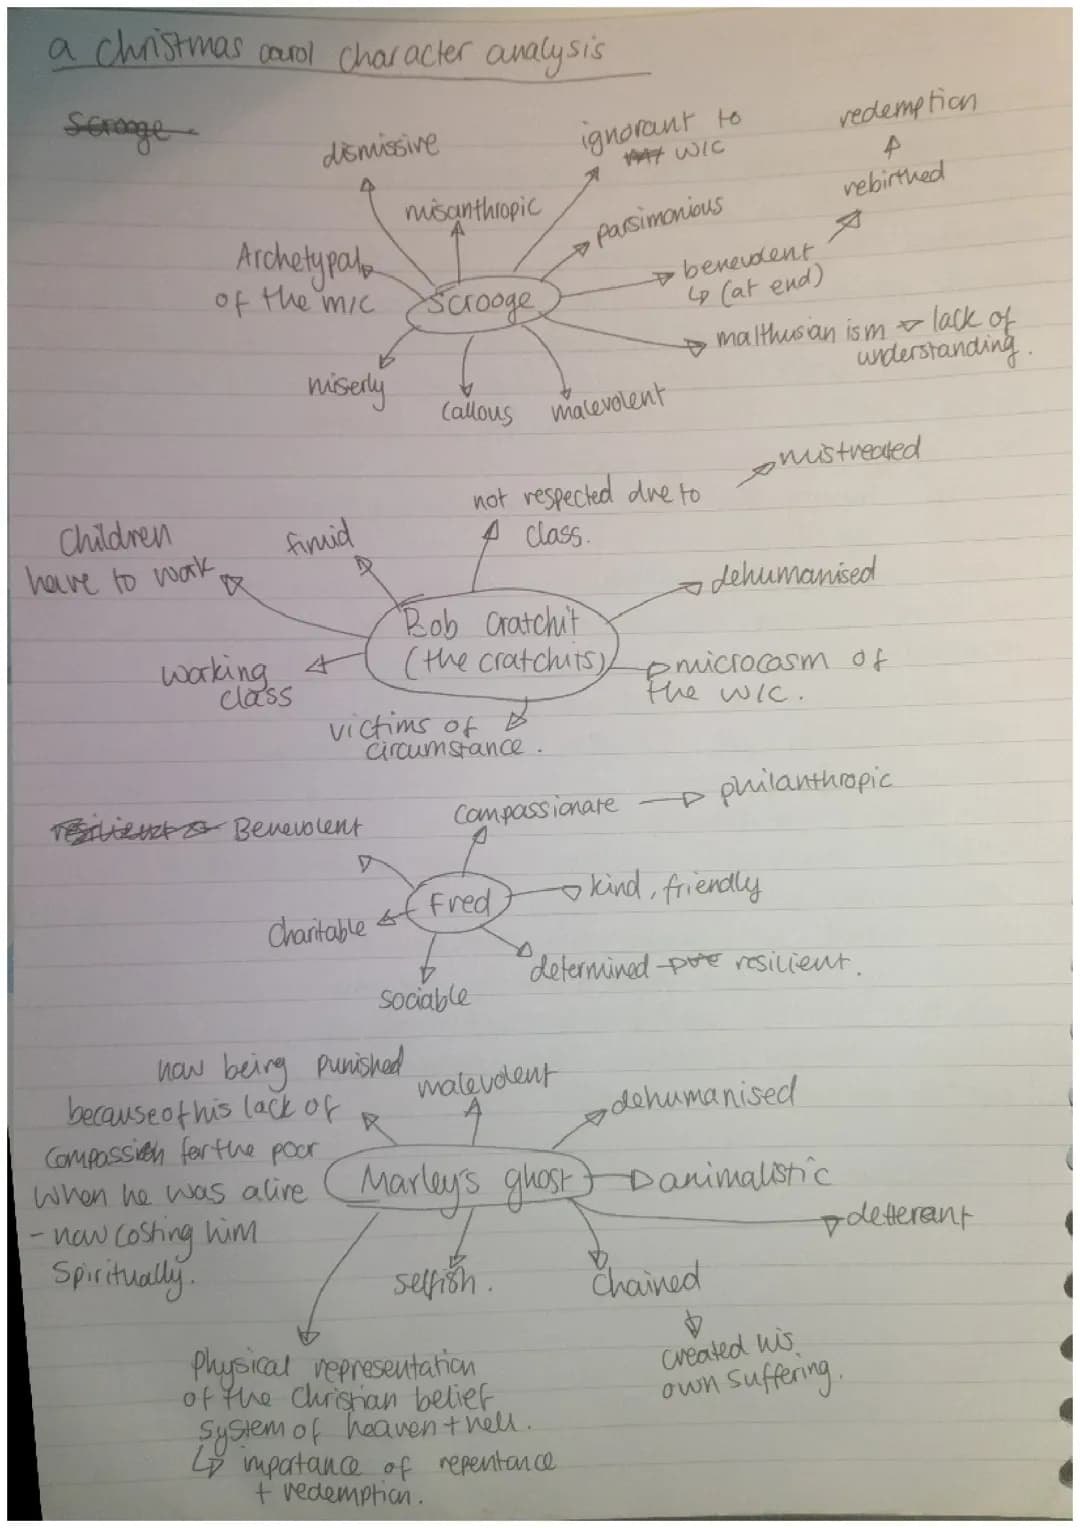 a christmas carol character analysis
Scrooge
dismissive
ignorant to
w/c
redemption
rebirthed
misanthropic
parsimonious
Archetypal
of the m/c
Scrooge
benevolent
↳ (at end)
malthusian ism → lack of
understanding.
miserly
callous
malevolent
mistreated
not respected due to
class.
Children
have to work
timid
dehumanised
Bob Cratchit
(the cratchits)
working
class
microcasm of
the w/c.
victims of
circumstance.
compassionate → philanthropic
resilient Benevolent
Fred
kind, friendly
Charitable
determined resilient.
sociable
now being punished
because of his lack of
compassion for the poor
when he was alive
- now costing him
Spiritually.
malevolent
dehumanised
Marley's ghost
animalistic
deterrant
selfish.
Chained
created his
own suffering.
Physical representation
of the Christian belief
system of heaven + hell.
↳ importance of repentance
+ redemption.